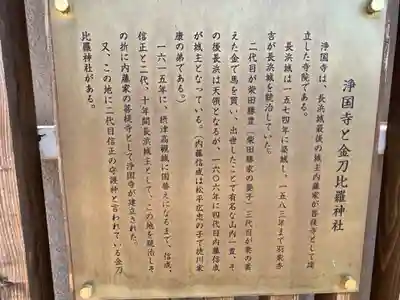 浄国寺と金刀比羅神社
浄国寺は、長浜城最後の城主内藤家が菩提寺として建
立した寺院である。
長浜城は一五七四年に築城し、一五八三年まで羽柴秀
吉が長浜城を統治していた。
二代目が柴田勝豊(柴田勝家の養子)三代目が妻の蓄
えた金で馬を買い、出世したことで有名な山内一豊、そ
の後長浜は天領となるが、一六〇六年に四代目内藤信成
が城主となっている。(内藤信成は松平広忠の子で徳川家
康の弟である。)
一六一五年に、摂津高槻城に国替えになるまで、信成、
信正と二代、十年間長浜城主として、この地を統治しそ
の折に内藤家の菩提寺として浄国寺が建立された。
又、この地に二代目信正の守護神と言われている金刀
比羅神社がある。